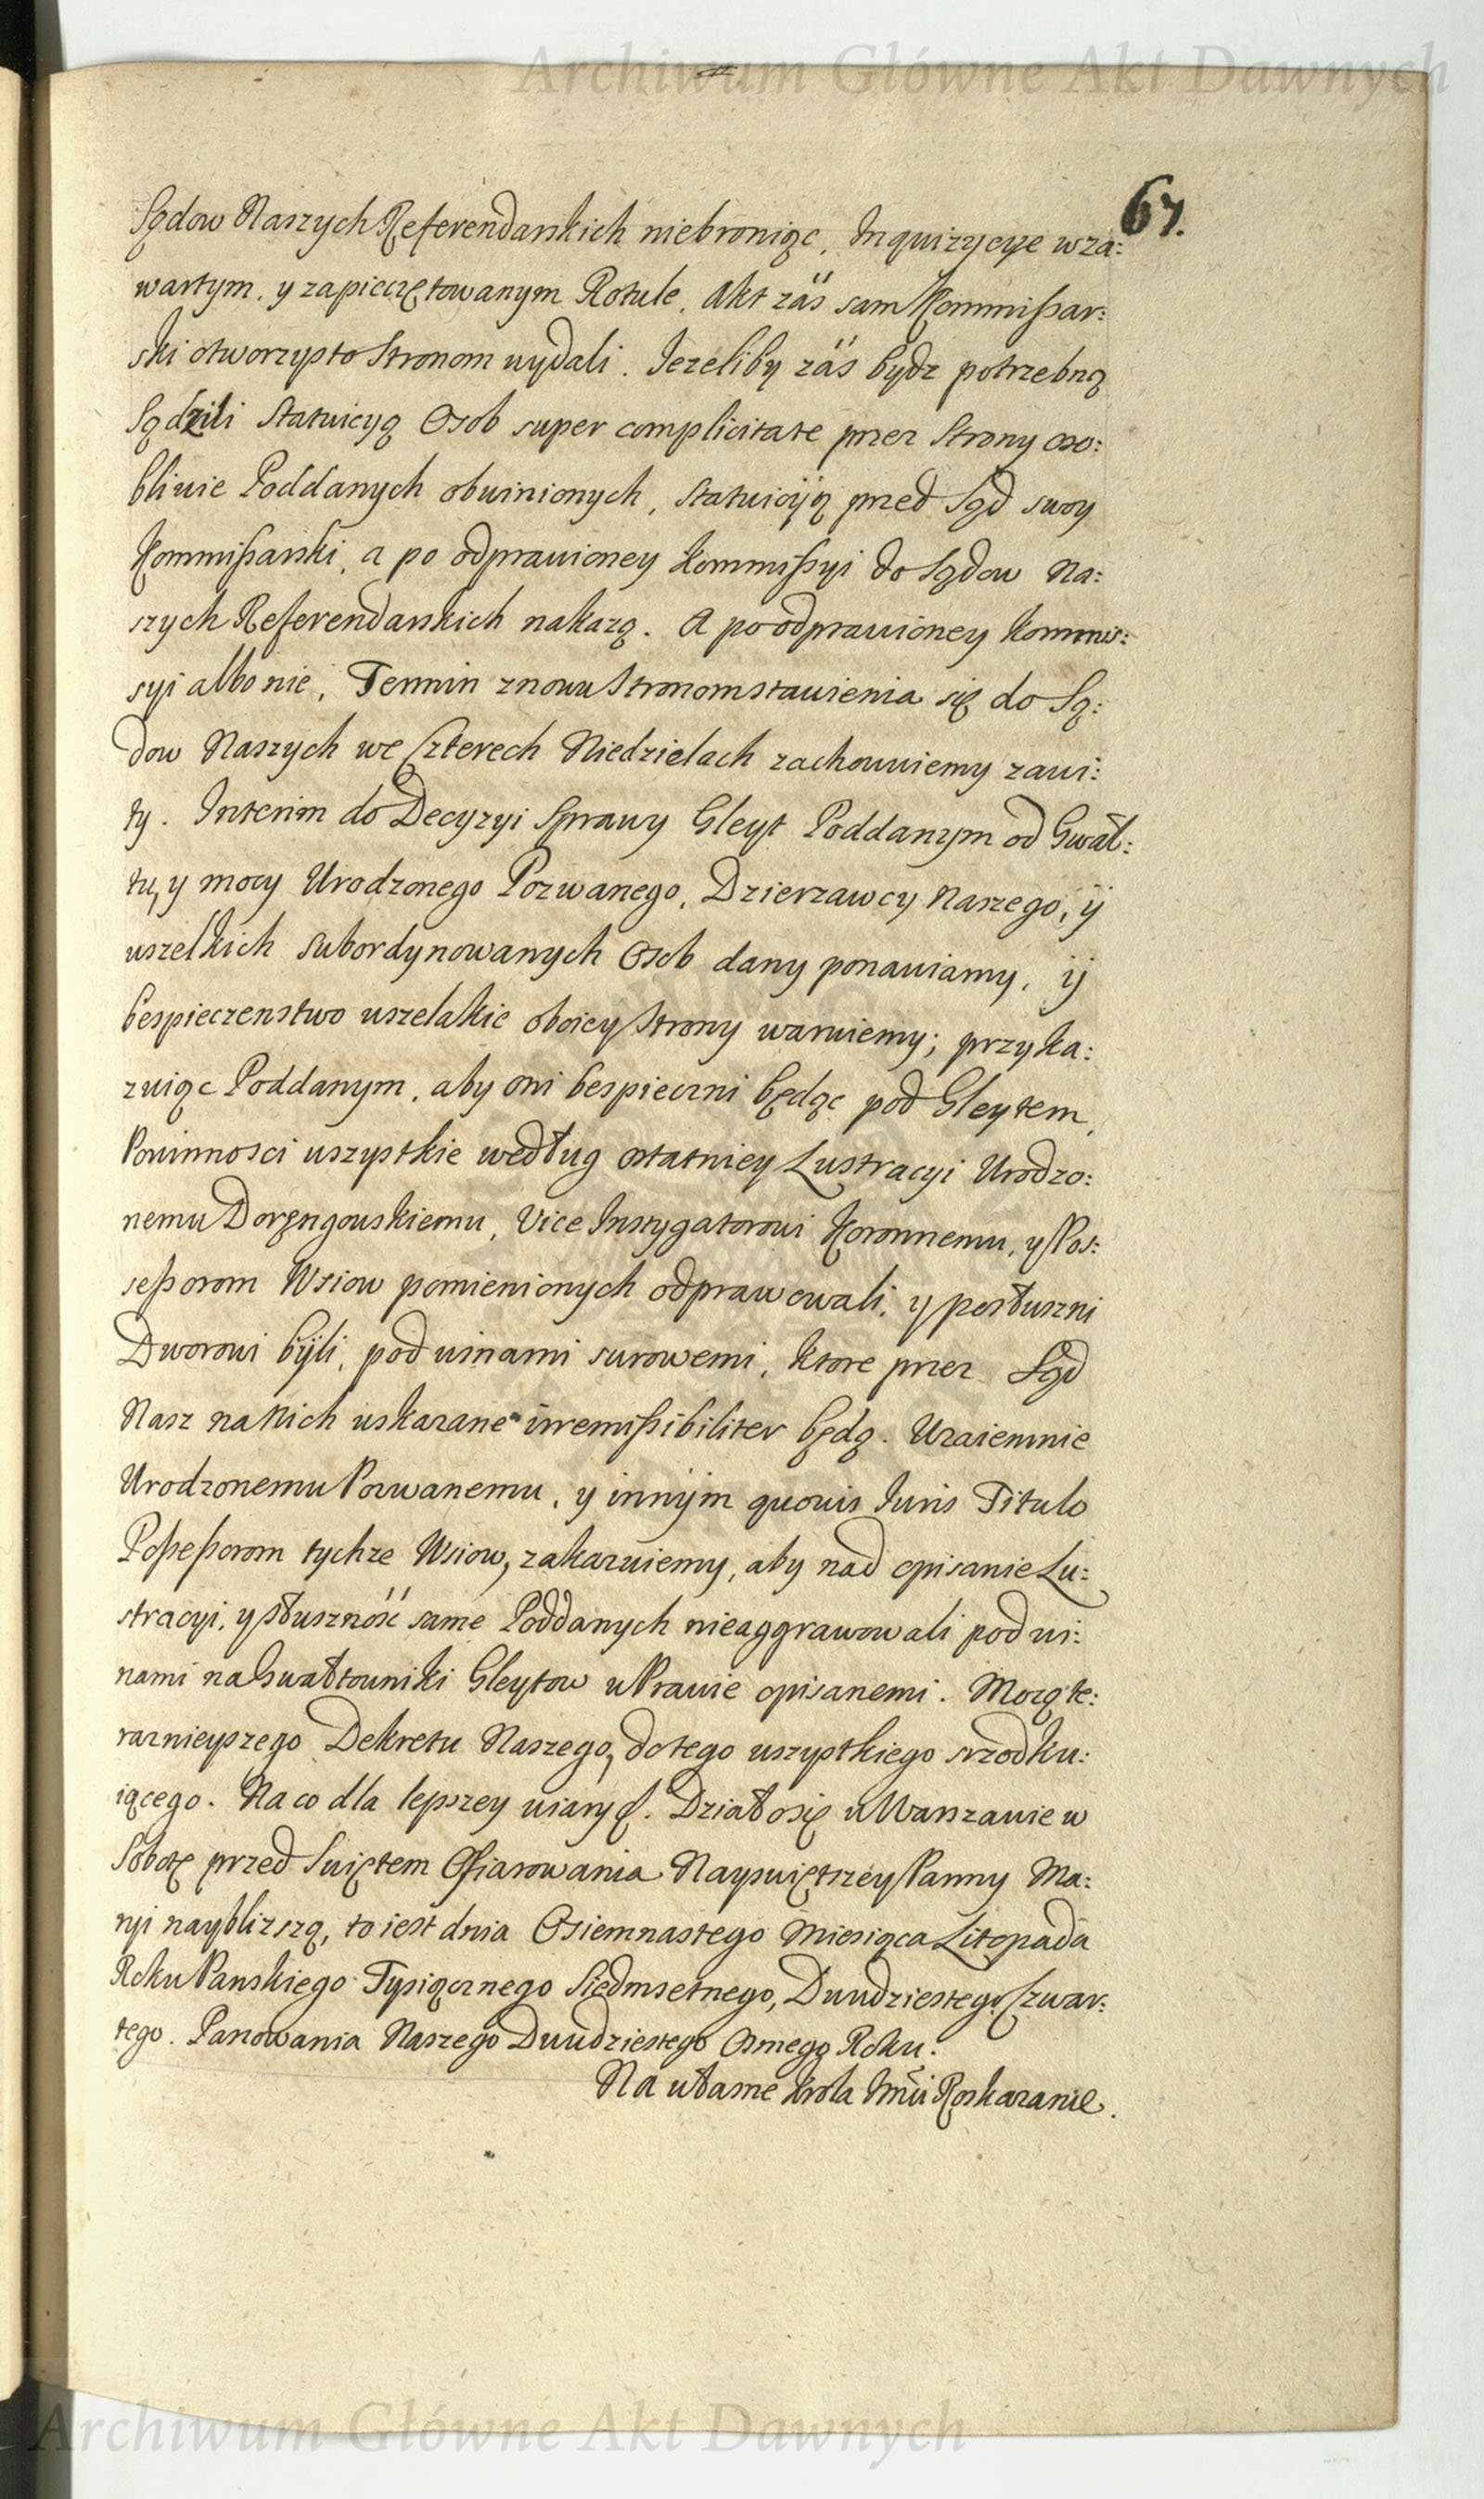 Archiwum Główne Akt Dawnych
67.
Sądow Naszych Referendarskich niebroniąc, Inquizycye wza:
wartym, y zapieczętowanym Rotule, Akt zaś sam Kommißar:
ski otworzysto Stronom wydali. Jezeliby zaś bydz potrzebną
Sądzili Statuicyą Osob super complicitate przez Strony oso:
bliwie Poddanych obwinionych, Statuicyą przed Sąd swoy
Kommißarski, a po odprawioney Kommißyi do Sądow Na:
szych Referendarskich nakazą. A po odprawioney Kommis:
syi albo nie, Termin znowu Stronom stawienia się do Są:
dow Naszych we Czterech Niedzielach zachowuiemy zawi:
ty. Interim do Decyzyi Sprawy Gleyt Poddanym od Gwał:
tu, y mocy Urodzonego Pozwanego, Dzierzawcy Naszego, ij
wszelkich subordynowanych Osob dany ponawiamy, ij
bespieczenstwo wszelakie oboiey Strony waruiemy; przyka:
zuiąc Poddanym, aby oni bespieczni będąc pod Gleytem,
Powinnosci wszystkie według ostatniey Lustracyi Urodzo:
nemu Doręngowskiemu, Vice Instygatorowi Koronnemu, y Pos:
seßorom Wsiow pomienionych odprawowali, y posłuszni
Dworowi byli, pod winami surowemi, ktore przez Sąd
Nasz na Nich wskazane irremißibiliter będą. Wzaiemnie
Urodzonemu Pozwanemu, y innym quovis Iuris Titulo
Poßeßorom tychze Wsiow, zakazuiemy, aby nad opisanie Lu:
stracyi, y słuszność same Poddanych nieaggrawowali pod wi:
nami na Gwałtowniki Gleytow w Prawie opisanemi. Mocą te:
raznieyszego Dekretu Naszego, do tego wszystkiego srzodku:
iącego. Na co dla lepszey wiary &. Działo się w Warszawie w
Sobotę przed Swiętem Ofiarowania Nayswiętrzey Panny Ma:
ryi nayblizszą, to iest dnia Osiemnastego Miesiąca Litopada
Roku Panskiego Tysiącznego Siedmsetnego, Dwudziestego Czwar:
tego. Panowania Naszego Dwudziestego Osmego Roku.
Na własne Krola Jmci Roskazanie.
Archiwum Główne Akt Dawnych